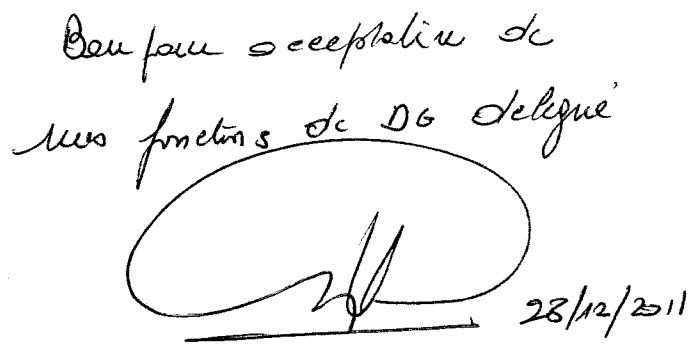 Bon pour acceptation de
mes fonctions de DG delegué
28/12/2011